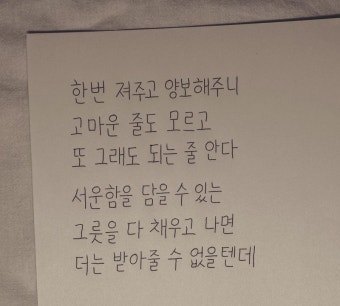 한번 져주고 양보해주니
고마운 줄도 모르고
또 그래도 되는 줄 안다
서운함을 담을 수 있는
그릇을 다 채우고 나면
더는 받아줄 수 없을텐데